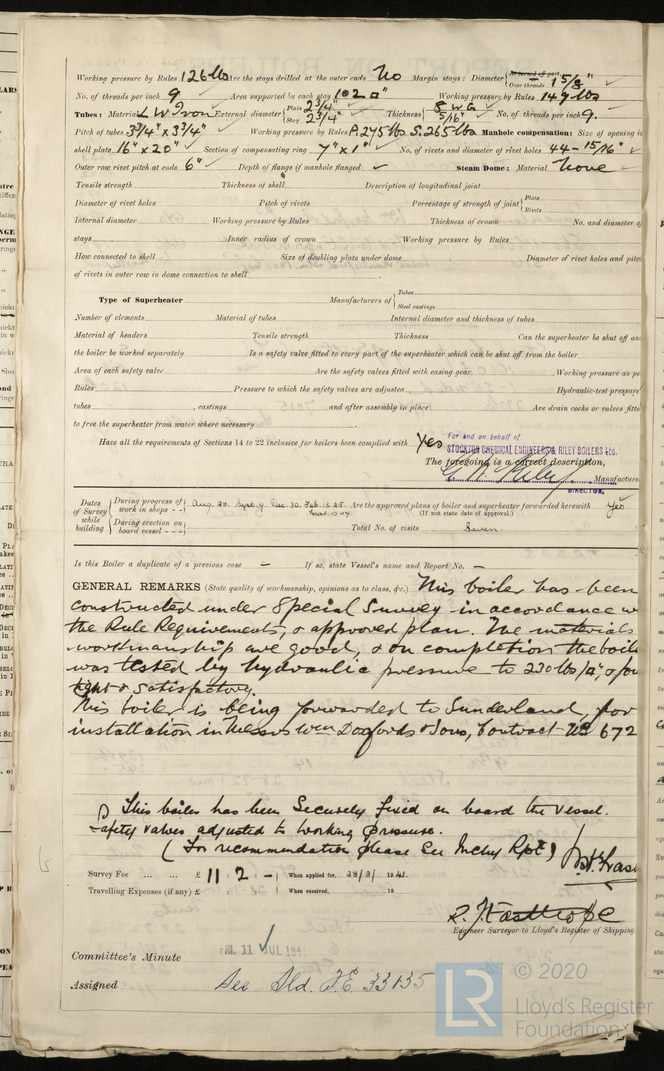 Working pressure by Rules 126 lbs Are the stays drilled at the outer ends No Margin stays: Diameter { At turned off part Over threads 1 5/8"
No. of threads per inch 9 Area supported by each stay 102 □" Working pressure by Rules 149 lbs
Tubes: Material L W Iron External diameter { Plain 2 3/4" Stay 2 3/4" Thickness { 8 W G 5/16" No. of threads per inch 9.
Pitch of tubes 3 3/4" x 3 3/4" Working pressure by Rules P. 245 lbs S. 265 lbs Manhole compensation: Size of opening in
shell plate 16" x 20" Section of compensating ring 7" x 1" No. of rivets and diameter of rivet holes 44 - 15/16"
Outer row rivet pitch at ends 6" Depth of flange if manhole flanged Steam Dome: Material None
Tensile strength Thickness of shell Description of longitudinal joint
Diameter of rivet holes Pitch of rivets Percentage of strength of joint { Plate Rivets
Internal diameter Working pressure by Rules Thickness of crown No. and diameter of
stays Inner radius of crown Working pressure by Rules
How connected to shell Size of doubling plate under dome Diameter of rivet holes and pitch
of rivets in outer row in dome connection to shell
Type of Superheater Manufacturers of { Tubes Steel castings
Number of elements Material of tubes Internal diameter and thickness of tubes
Material of headers Tensile strength Thickness Can the superheater be shut off and
the boiler be worked separately Is a safety valve fitted to every part of the superheater which can be shut off from the boiler
Area of each safety valve Are the safety valves fitted with easing gear Working pressure as per
Rules Pressure to which the safety valves are adjusted Hydraulic test pressure
tubes , castings and after assembly in place Are drain cocks or valves fitted
to free the superheater from water where necessary
Have all the requirements of Sections 14 to 22 inclusive for boilers been complied with Yes
For and on behalf of
STOCKTON CHEMICAL ENGINEERS & RILEY BOILERS Ltd.
The foregoing is a correct description,
Manufacture
DIRECTOR.
Dates of Survey while building { During progress of work in shops - - Aug. 20. Sept. 9. Dec. 30. Feb. 13. 25. Are the approved plans of boiler and superheater forwarded herewith Yes
(If not state date of approval.)
During erection on board vessel - - - Total No. of visits Seven
Is this Boiler a duplicate of a previous case – If so, state Vessel's name and Report No. –
GENERAL REMARKS (State quality of workmanship, opinions as to class, &c.) This boiler has been
constructed under Special Survey in accordance w
the Rule Requirements, & approved plan. The materials
workmanship are good, & on completion the boile
was tested by hydraulic pressure to 230 lbs/□", & fou
tight & satisfactory.
This boiler is being forwarded to Sunderland, for
installation in Messrs Wm Doxfords & Sons, Contract No 672
This boiler has been Securely fixed on board the Vessel.
Safety valves adjusted to working pressure.
(For recommendation please see Mchy Rpt)
Survey Fee ... ... £ 11 : 2 : – When applied for, 28/3/ 1941.
Travelling Expenses (if any) £ : : When received, 19
Engineer Surveyor to Lloyd's Register of Shipping
Committee's Minute FRI. 11 JUL 194
Assigned See Sld. F.E. 33135
LR
© 2020
Lloyd's Register
Foundation